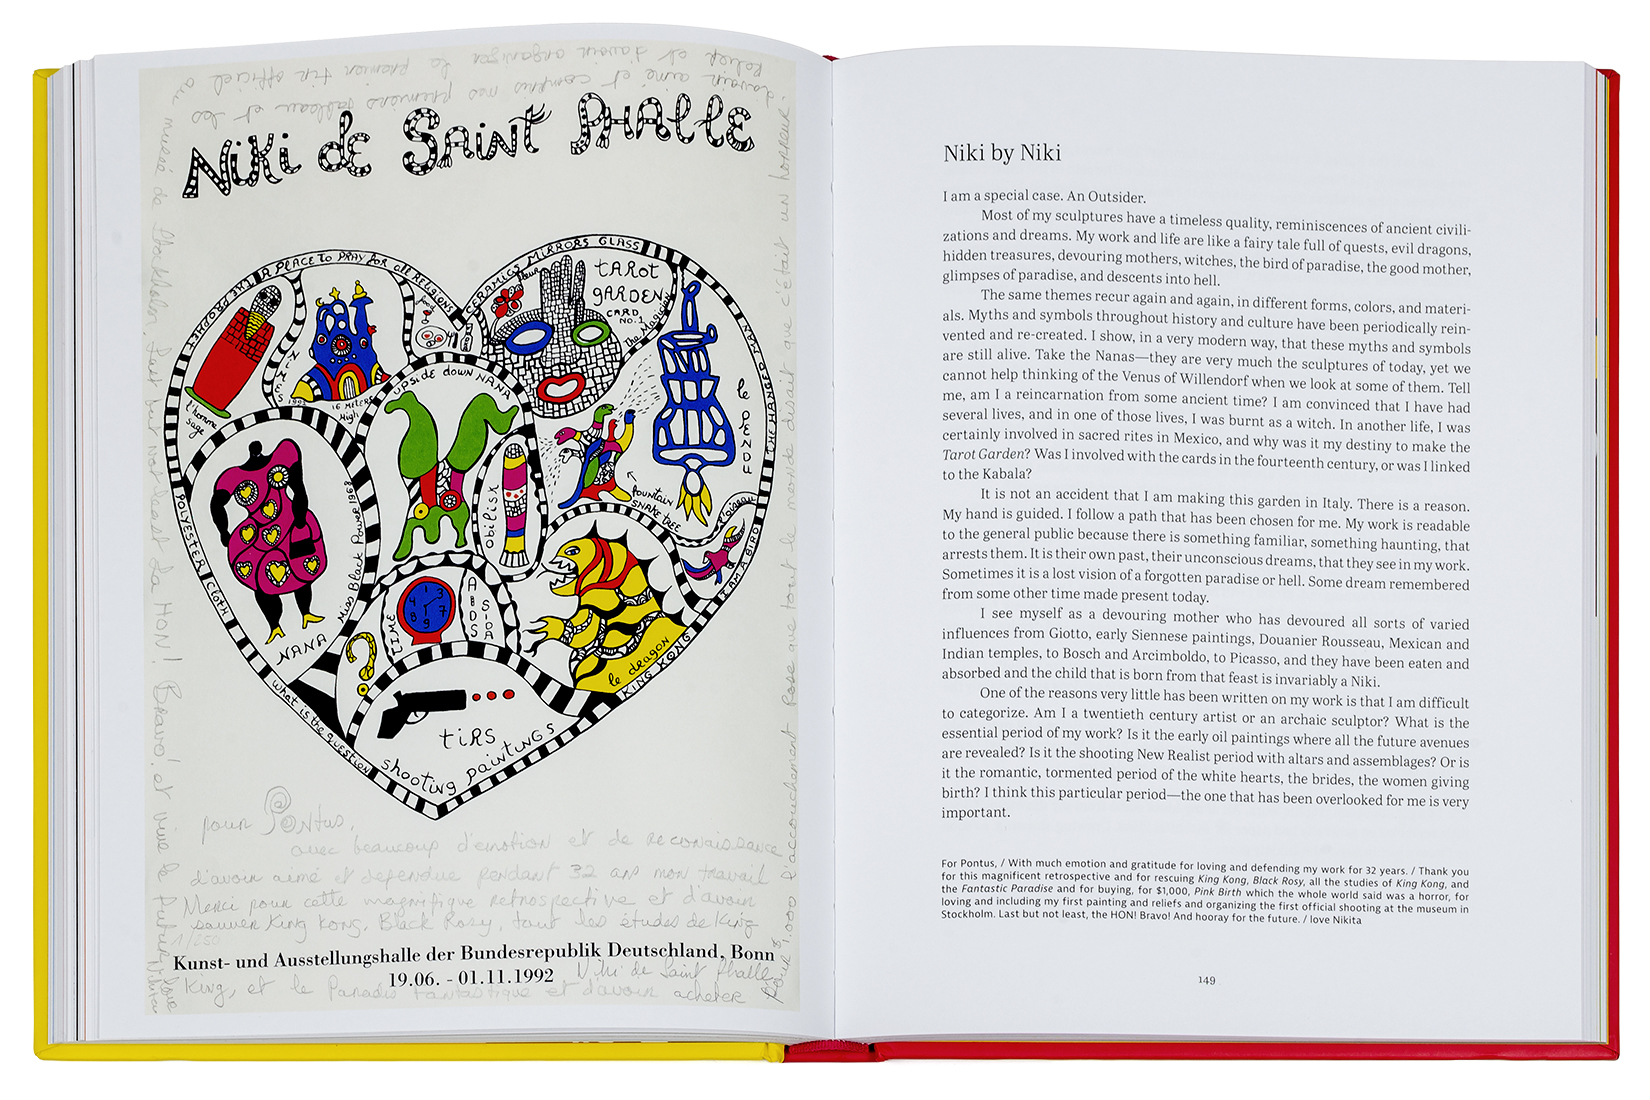 Niki de Saint Phalle
THE PROPHET
A PLACE TO PRAY for all RELIGIONS
CERAMICS MIRRORS GLASS
l'homme
sage
NIKI'S
1992
16 METERS
High
food
TAROT
GARDEN
CARD
NO. 1
The Magician
THE HANGED MAN
le PENDU
UPSIDE DOWN NANA
Obilisk
fountain
SNAKE TREE
l'oiseau
I AM A BIRD
POLYESTER CLOTH
Miss Black Power 1968
NANA
TIME
AIDS
SIDA
le dragon
KING KONG
what is the question
tiRS
shooting paintings
pour Pontus,
avec beaucoup d'émotion et de reconaissance
d'avoir aimé et defendue pendant 32 ans mon travail
Merci pour cette magnifique retrospective et d'avoir
sauver King Kong, Black Rosy, tout les études de King
Kong, et le Paradis fantastique et d'avoir acheter
pour 1.000 $ l'accouchement rose que tout le monde disait que c'était un horreur.
d'avoir aimé et compris mes premiers tableau et les
relief et d'avoir organiser le premier tir officiel au
musée de Stockholm, last but not least la HON! Bravo! et vive le futur love
Nikita
1/250
Niki de Saint Phalle
Kunst- und Ausstellungshalle der Bundesrepublik Deutschland, Bonn
19.06. - 01.11.1992
Niki by Niki
I am a special case. An Outsider.
Most of my sculptures have a timeless quality, reminiscences of ancient civili-
zations and dreams. My work and life are like a fairy tale full of quests, evil dragons,
hidden treasures, devouring mothers, witches, the bird of paradise, the good mother,
glimpses of paradise, and descents into hell.
The same themes recur again and again, in different forms, colors, and materi-
als. Myths and symbols throughout history and culture have been periodically rein-
vented and re-created. I show, in a very modern way, that these myths and symbols
are still alive. Take the Nanas—they are very much the sculptures of today, yet we
cannot help thinking of the Venus of Willendorf when we look at some of them. Tell
me, am I a reincarnation from some ancient time? I am convinced that I have had
several lives, and in one of those lives, I was burnt as a witch. In another life, I was
certainly involved in sacred rites in Mexico, and why was it my destiny to make the
Tarot Garden? Was I involved with the cards in the fourteenth century, or was I linked
to the Kabala?
It is not an accident that I am making this garden in Italy. There is a reason.
My hand is guided. I follow a path that has been chosen for me. My work is readable
to the general public because there is something familiar, something haunting, that
arrests them. It is their own past, their unconscious dreams, that they see in my work.
Sometimes it is a lost vision of a forgotten paradise or hell. Some dream remembered
from some other time made present today.
I see myself as a devouring mother who has devoured all sorts of varied
influences from Giotto, early Siennese paintings, Douanier Rousseau, Mexican and
Indian temples, to Bosch and Arcimboldo, to Picasso, and they have been eaten and
absorbed and the child that is born from that feast is invariably a Niki.
One of the reasons very little has been written on my work is that I am difficult
to categorize. Am I a twentieth century artist or an archaic sculptor? What is the
essential period of my work? Is it the early oil paintings where all the future avenues
are revealed? Is it the shooting New Realist period with altars and assemblages? Or is
it the romantic, tormented period of the white hearts, the brides, the women giving
birth? I think this particular period—the one that has been overlooked for me is very
important.
For Pontus, / With much emotion and gratitude for loving and defending my work for 32 years. / Thank you
for this magnificent retrospective and for rescuing King Kong, Black Rosy, all the studies of King Kong, and
the Fantastic Paradise and for buying, for $1,000, Pink Birth which the whole world said was a horror, for
loving and including my first painting and reliefs and organizing the first official shooting at the museum in
Stockholm. Last but not least, the HON! Bravo! And hooray for the future. / love Nikita
149